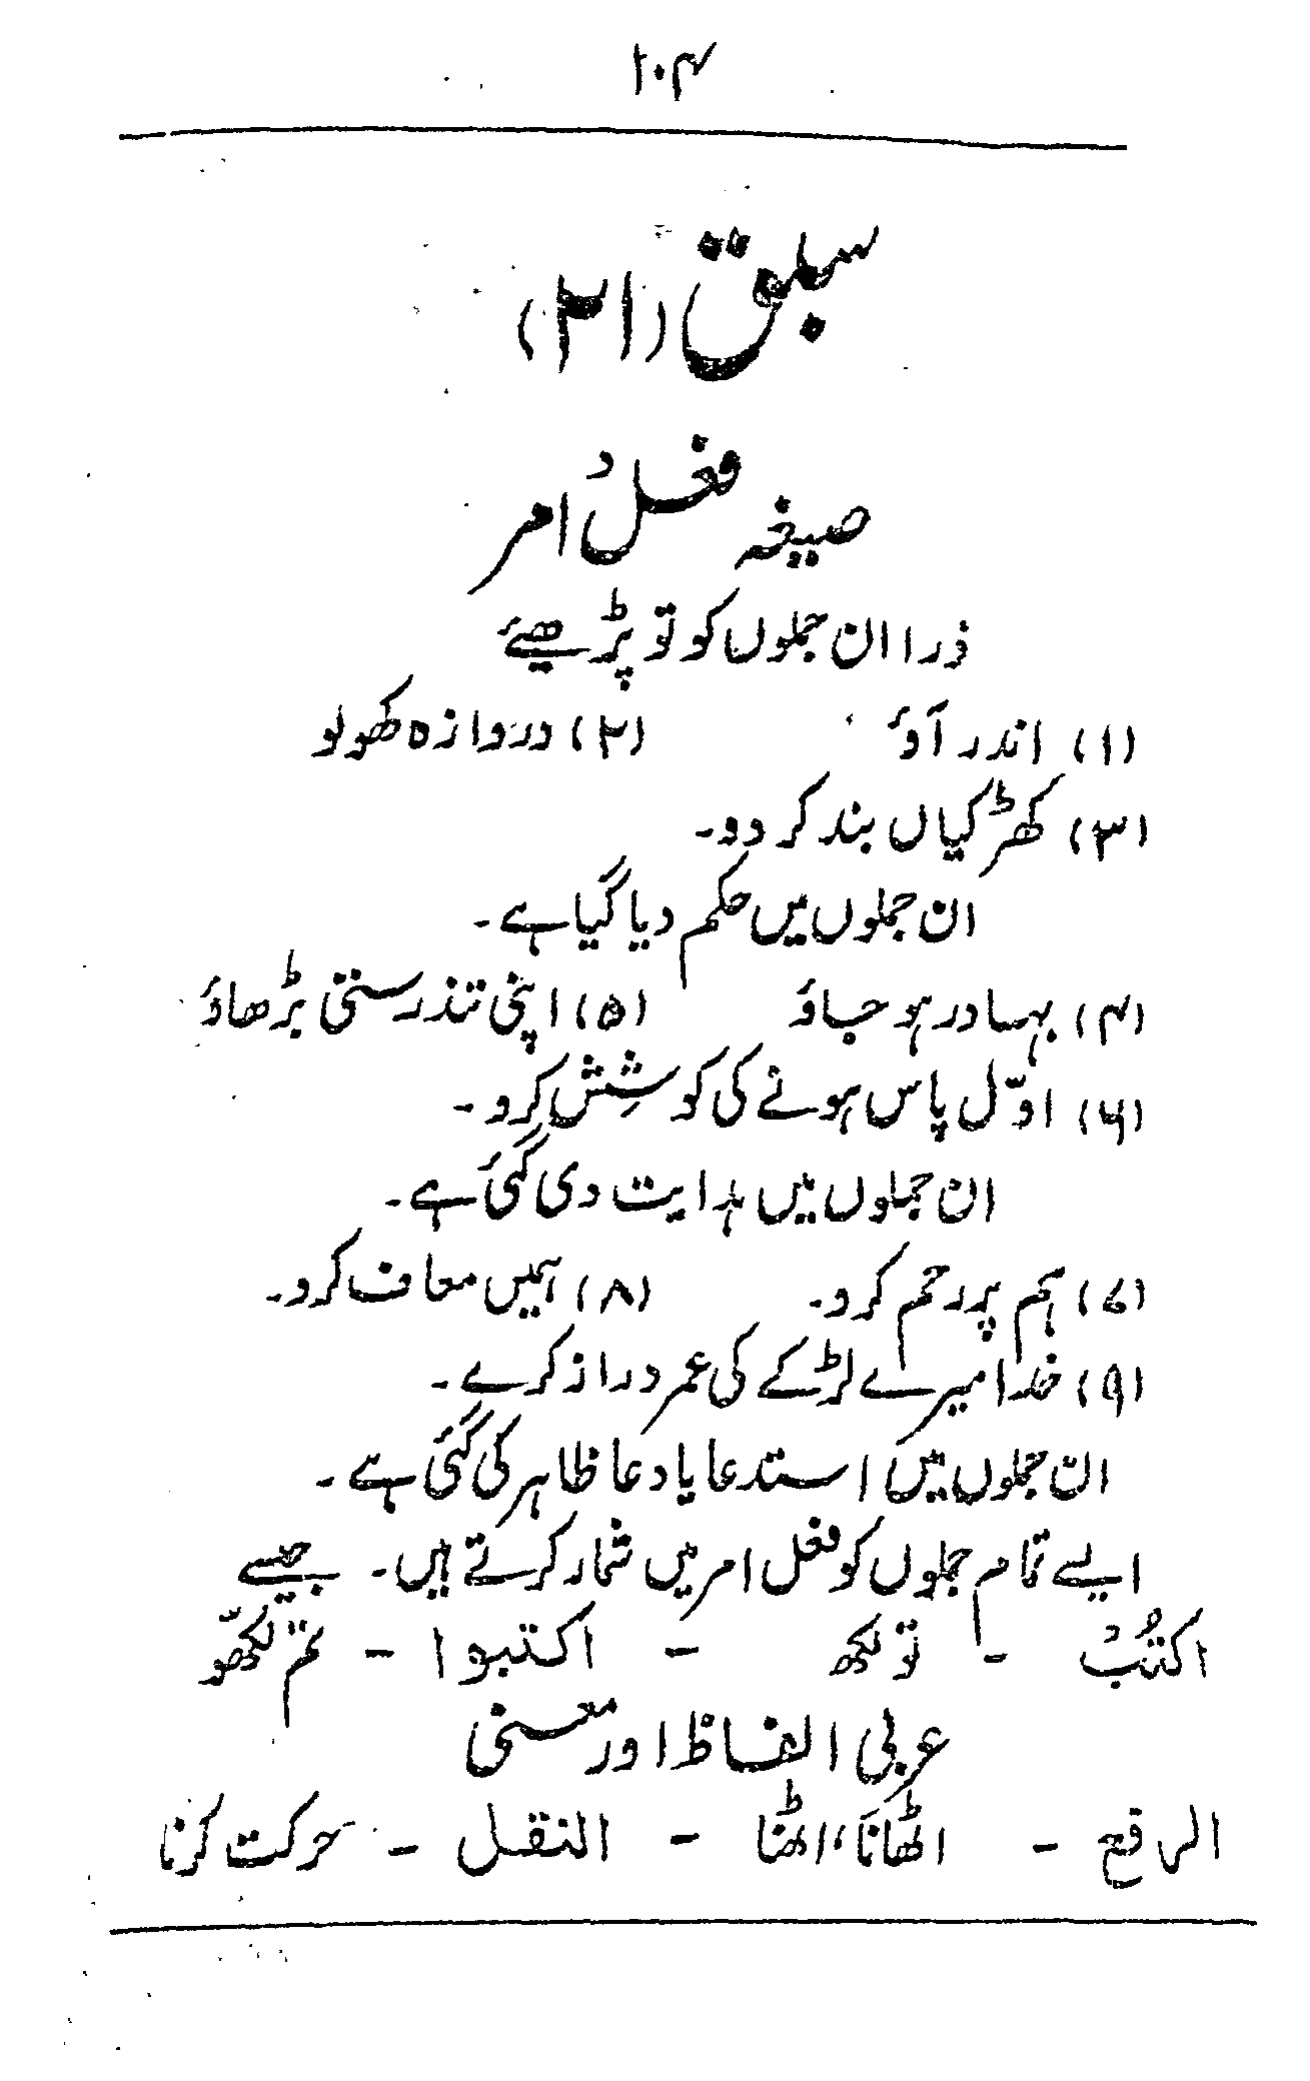 ۱۰۴
سبلق (۲۱)
صیغہ فعل امر
ذرا ان جملوں کو تو پڑھیئے
(۱) اندر آوٴ (۲) دروازہ کھولو
(۳) کھڑکیاں بند کر دو۔
ان جملوں میں حکم دیا گیا ہے۔
(۴) بہادر ہو جاوٴ (۵) اپنی تندرستی بڑھاوٴ
(۶) اوّل پاس ہونے کی کوشِش کرو۔
ان جملوں میں ہدایت دی گئی ہے۔
(۷) ہم پر رحم کرو۔ (۸) ہمیں معاف کرو۔
(۹) خدا میرے لڑکے کی عمر دراز کرے۔
ان جملوں میں استدعا یا دعا ظاہر کی گئی ہے۔
ایسے تمام جملوں کو فعل امر میں شمار کرتے ہیں۔ جیسے
اکتُبْ - تو لکھ - اکتبوا - تم لکھّو
عربی الفاظ اور معنی
الرفع - اٹھانا، اٹھنا - النقل - حرکت کرنا